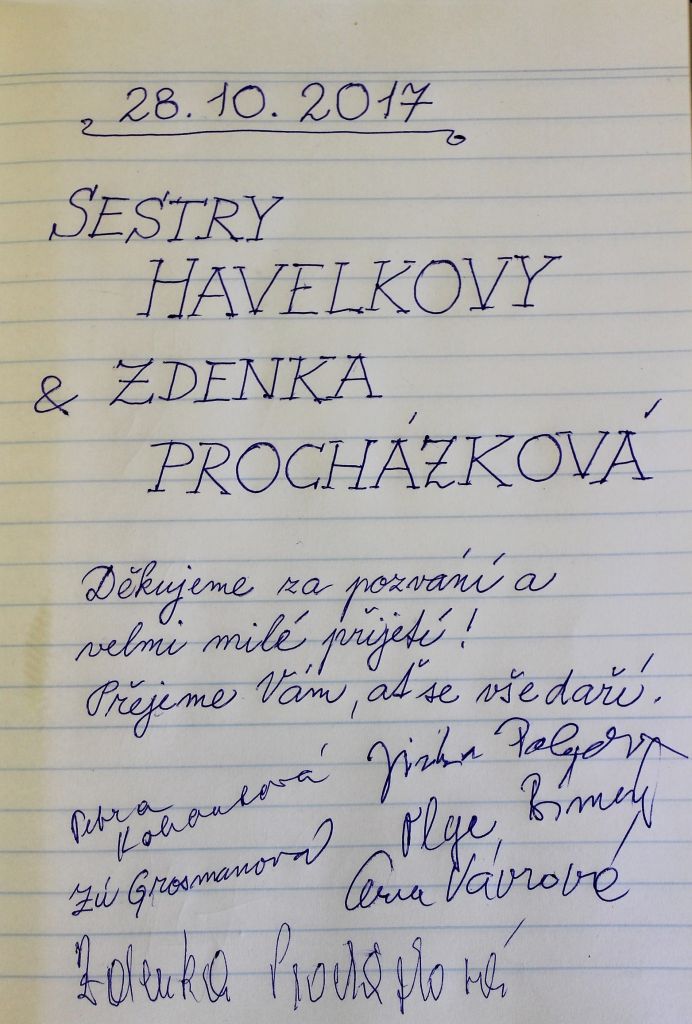 28.10.2017
SESTRY
HAVELKOVY
& ZDENKA
PROCHÁZKOVÁ
Děkujeme za pozvání a
velmi milé přijetí!
Přejeme Vám, ať se vše daří.
Petra
Kohoutová
Zú Grosmanová
Vávrová
Zdenka Procházková